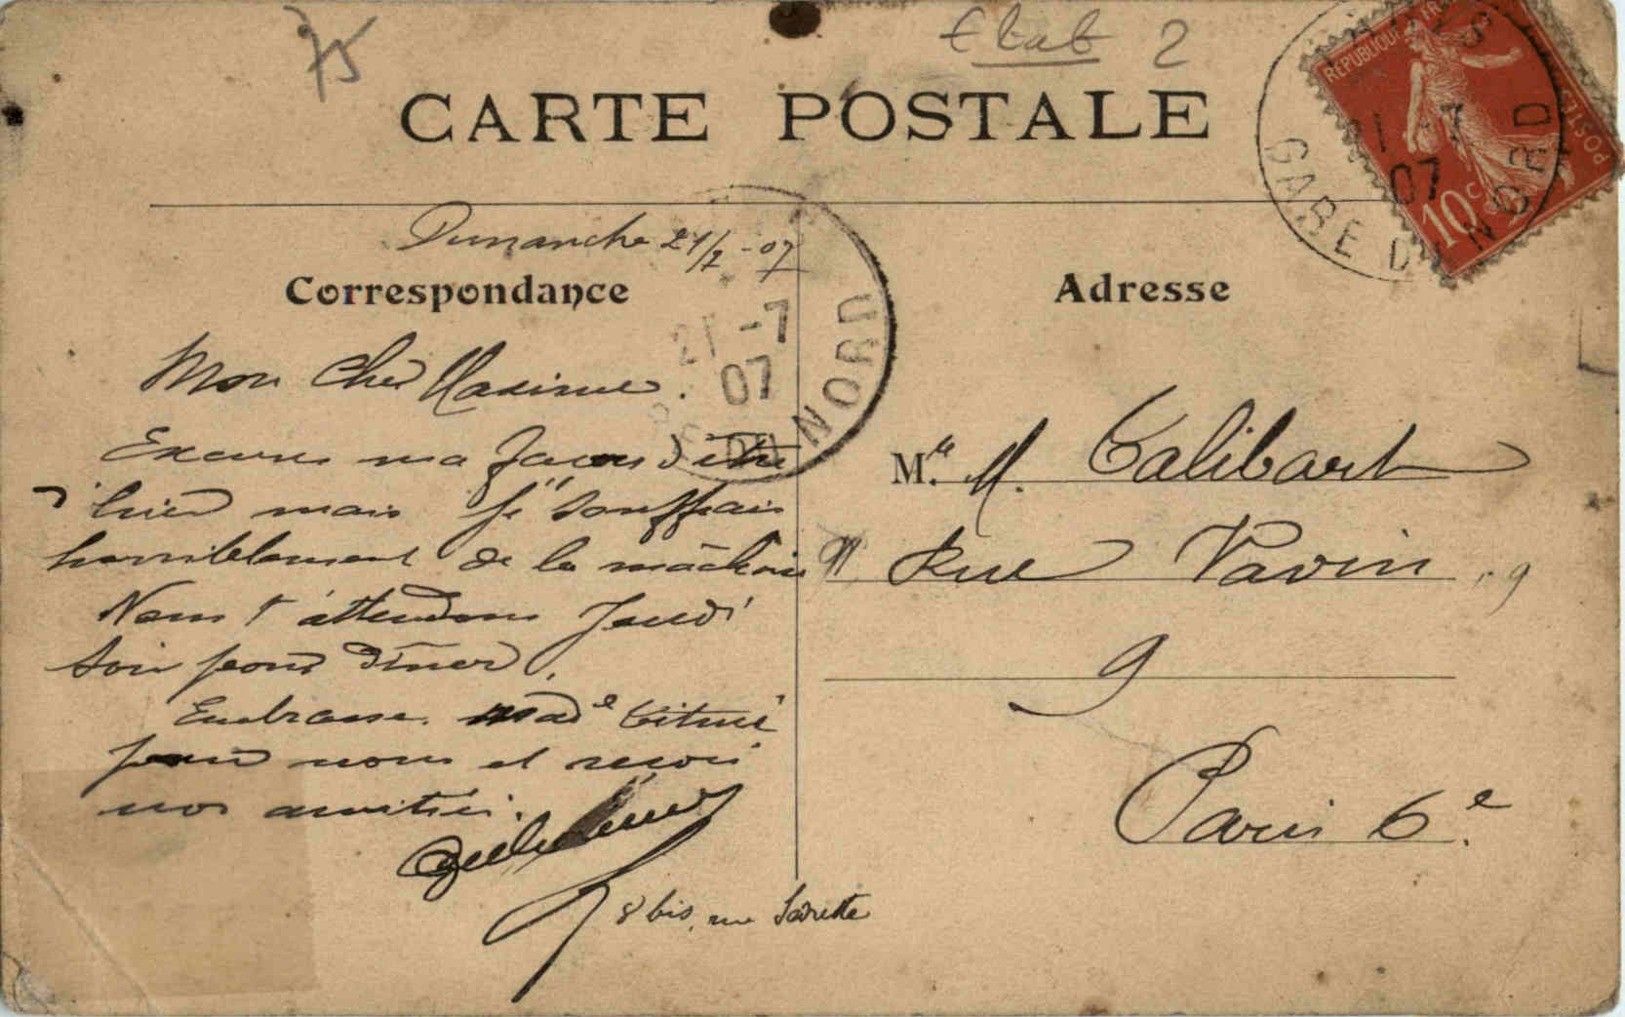 75
Etab 2
CARTE POSTALE
REPUBLIQUE
POSTES
10c
21 -7
07
GARE DU NORD
Dimanche 21/7 -07
Correspondance
21 -7
07
RE DU NORD
Mon Cher Maxime.
Excuses ma façon d'être
d'hier mais je souffrais
horriblement de la mâchoire
Nous t'attendons Jeudi
soir pour dîner.
Embrasse Made
pour nous et reçois
nos amitiés.
8 bis, rue Sarette
Adresse
M. M. Calibart
Rue Vavin, 9
9
Paris 6e.